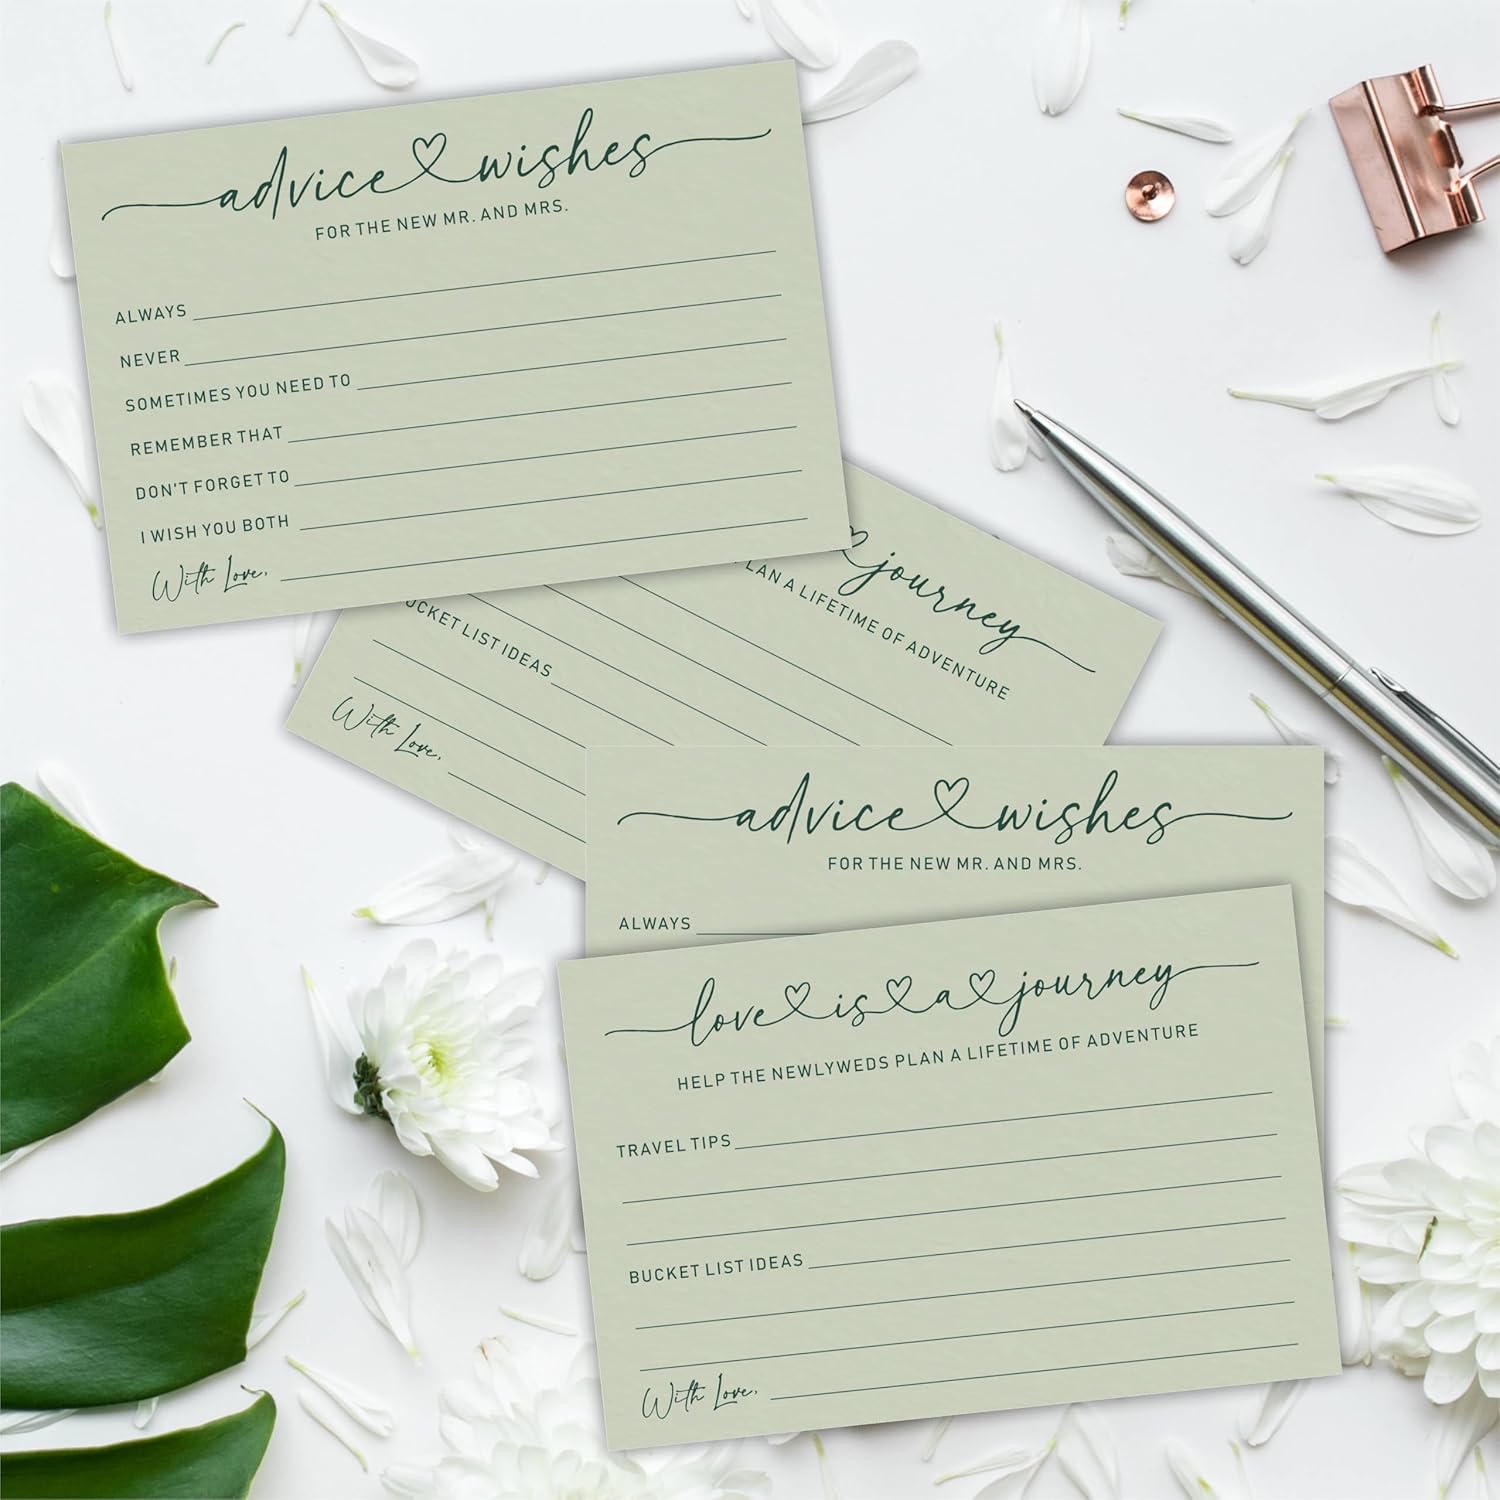 advice wishes
FOR THE NEW MR. AND MRS.
ALWAYS
NEVER
SOMETIMES YOU NEED TO
REMEMBER THAT
DON'T FORGET TO
I WISH YOU BOTH
With Love,
journey
LAN A LIFETIME OF ADVENTURE
UCKET LIST IDEAS
With Love,
advice wishes
FOR THE NEW MR. AND MRS.
ALWAYS
love is a journey
HELP THE NEWLYWEDS PLAN A LIFETIME OF ADVENTURE
TRAVEL TIPS
BUCKET LIST IDEAS
With Love,